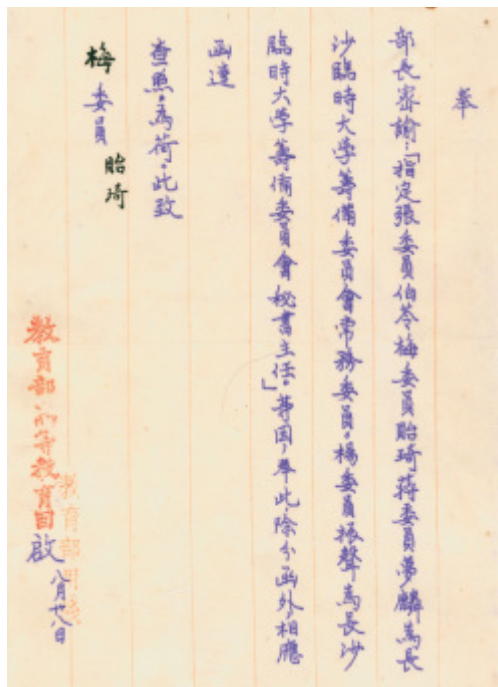 奉
部長密諭：「指定張委員伯苓梅委員貽琦蔣委員夢麟為長
沙臨時大学籌備委員會常務委員。楊委員振聲為長沙
臨時大学籌備委員會秘書主任。」等因，奉此，除分函外，相應
函達
查照，為荷。此致
梅委員 貽琦
教育部高等教育司啟 八月廿八日
教育部用箋